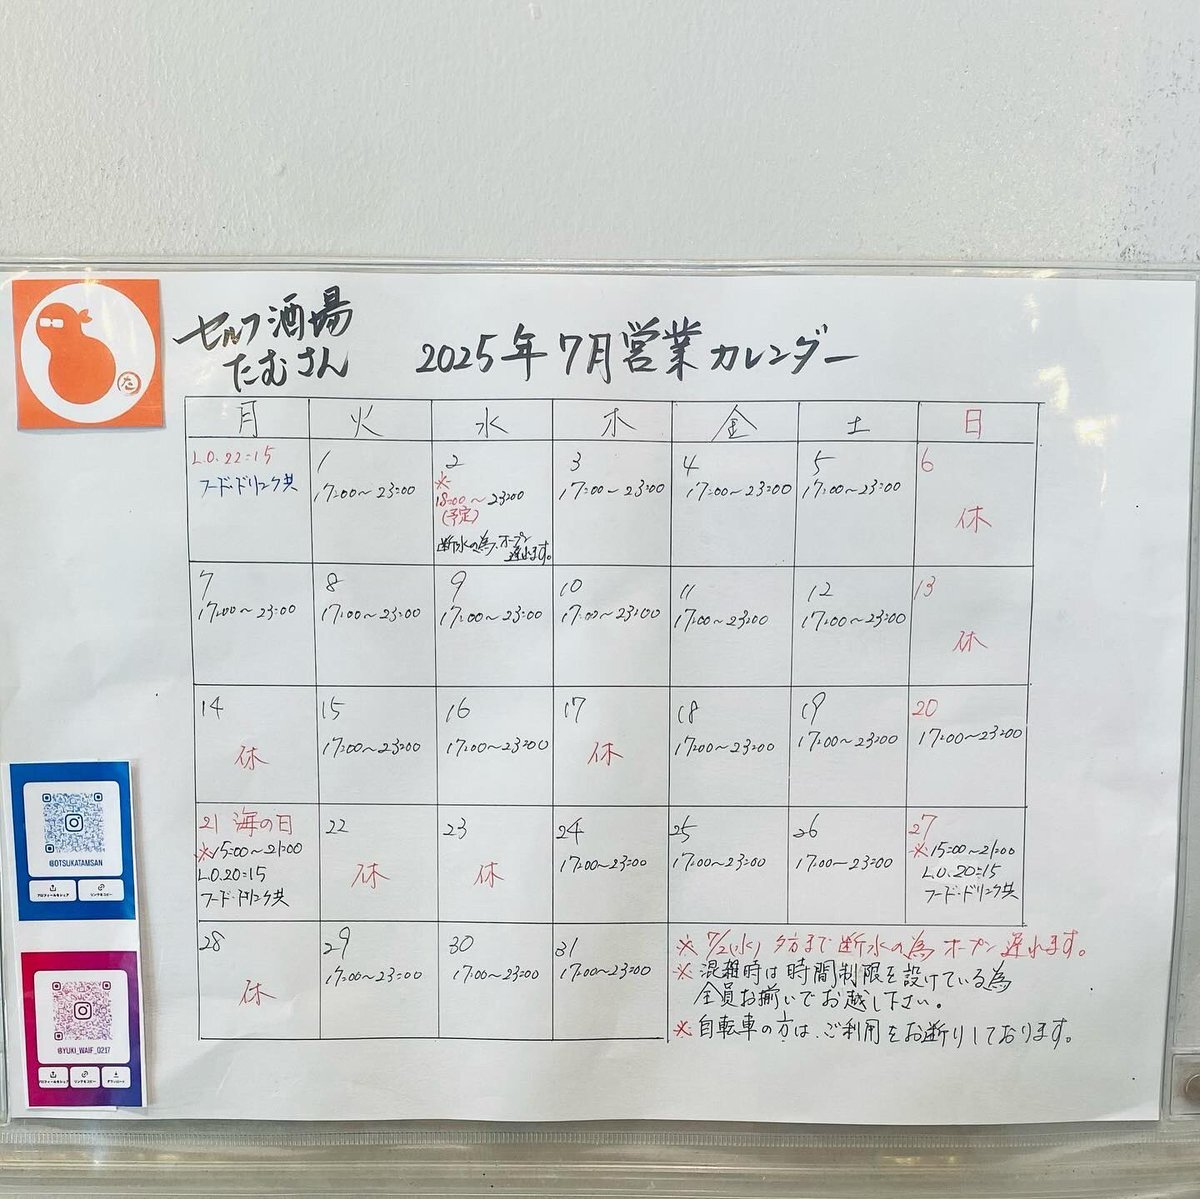 セルフ酒場
たむさん
2025年7月営業カレンダー
月 火 水 木 金 土 日
L.O. 22:15
フード・ドリンク共
1
17:00～23:00
2
※
18:00～23:00
(予定)
断水の為、オープン
遅れます。
3
17:00～23:00
4
17:00～23:00
5
17:00～23:00
6
休
7
17:00～23:00
8
17:00～23:00
9
17:00～23:00
10
17:00～23:00
11
17:00～23:00
12
17:00～23:00
13
休
14
休
15
17:00～23:00
16
17:00～23:00
17
休
18
17:00～23:00
19
17:00～23:00
20
17:00～23:00
21 海の日
※15:00～21:00
L.O.20:15
フード・ドリンク共
22
休
23
休
24
17:00～23:00
25
17:00～23:00
26
17:00～23:00
27
※15:00～21:00
L.O.20:15
フード・ドリンク共
28
休
29
17:00～23:00
30
17:00～23:00
31
17:00～23:00
※ 7/2(水) 夕方まで断水の為 オープン遅れます。
※ 混雑時は時間制限を設けている為
全員お揃いでお越し下さい。
※ 自転車の方は、ご利用をお断りしております。
た
@OTSUKATAMSAN
プロフィールをシェア リンクをコピー
@YUKI_WAIF_0217
プロフィールをシェア リンクをコピー ダウンロード